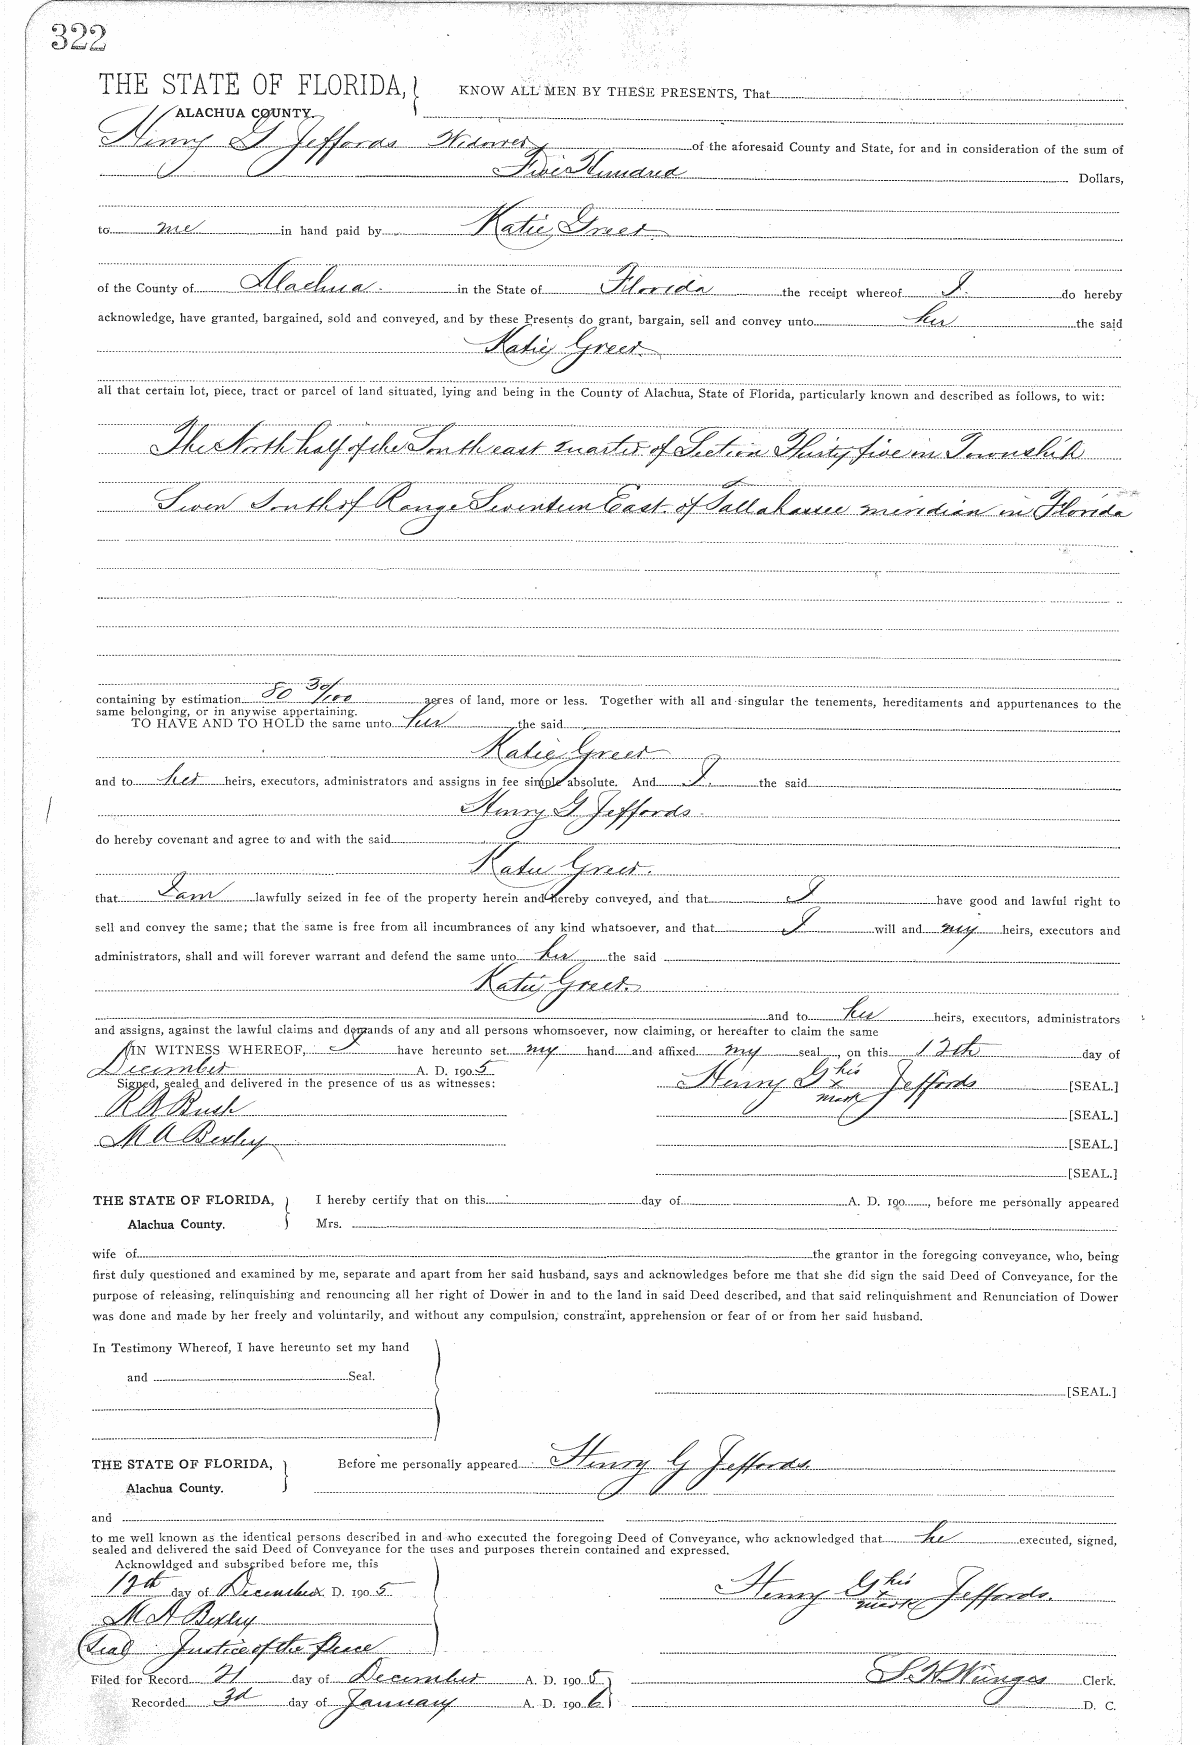 322
THE STATE OF FLORIDA, KNOW ALL MEN BY THESE PRESENTS, That
ALACHUA COUNTY.
Henry G Jeffords Widower of the aforesaid County and State, for and in consideration of the sum of
Five Hundred Dollars,
to me in hand paid by Katie Greer
of the County of Alachua in the State of Florida the receipt whereof I do hereby
acknowledge, have granted, bargained, sold and conveyed, and by these Presents do grant, bargain, sell and convey unto her the said
Katie Greer
all that certain lot, piece, tract or parcel of land situated, lying and being in the County of Alachua, State of Florida, particularly known and described as follows, to wit:
The North half of the South east quarter of Section Thirty five in Township
Seven South of Range Seventeen East. of Tallahassee meridian in Florida
containing by estimation 80 30/100 acres of land, more or less. Together with all and singular the tenements, hereditaments and appurtenances to the
same belonging, or in anywise appertaining.
TO HAVE AND TO HOLD the same unto her the said
Katie Greer
and to her heirs, executors, administrators and assigns in fee simple absolute. And I the said
Henry G Jeffords
do hereby covenant and agree to and with the said
Katie Greer.
that I am lawfully seized in fee of the property herein and hereby conveyed, and that I have good and lawful right to
sell and convey the same; that the same is free from all incumbrances of any kind whatsoever, and that I will and my heirs, executors and
administrators, shall and will forever warrant and defend the same unto her the said
Katie Greer.
and to her heirs, executors, administrators
and assigns, against the lawful claims and demands of any and all persons whomsoever, now claiming, or hereafter to claim the same
IN WITNESS WHEREOF, I have hereunto set my hand and affixed my seal, on this 12th day of
December A. D. 1905
Signed, sealed and delivered in the presence of us as witnesses: Henry G his x mark Jeffords [SEAL.]
R A Bush [SEAL.]
M A Bexley [SEAL.]
[SEAL.]
THE STATE OF FLORIDA, I hereby certify that on this day of A. D. 190 , before me personally appeared
Alachua County. Mrs.
wife of the grantor in the foregoing conveyance, who, being
first duly questioned and examined by me, separate and apart from her said husband, says and acknowledges before me that she did sign the said Deed of Conveyance, for the
purpose of releasing, relinquishing and renouncing all her right of Dower in and to the land in said Deed described, and that said relinquishment and Renunciation of Dower
was done and made by her freely and voluntarily, and without any compulsion, constraint, apprehension or fear of or from her said husband.
In Testimony Whereof, I have hereunto set my hand
and Seal.
[SEAL.]
THE STATE OF FLORIDA, Before me personally appeared Henry G Jeffords
Alachua County.
and
to me well known as the identical persons described in and who executed the foregoing Deed of Conveyance, who acknowledged that he executed, signed,
sealed and delivered the said Deed of Conveyance for the uses and purposes therein contained and expressed.
Acknowldged and subscribed before me, this
12th day of December A. D. 1905 Henry G his x mark Jeffords.
M A Bexley
Seal Justice of the Peace
Filed for Record 21 day of December A. D. 1905 S. H. Wienges Clerk.
Recorded 3d day of January A. D. 1906 D. C.